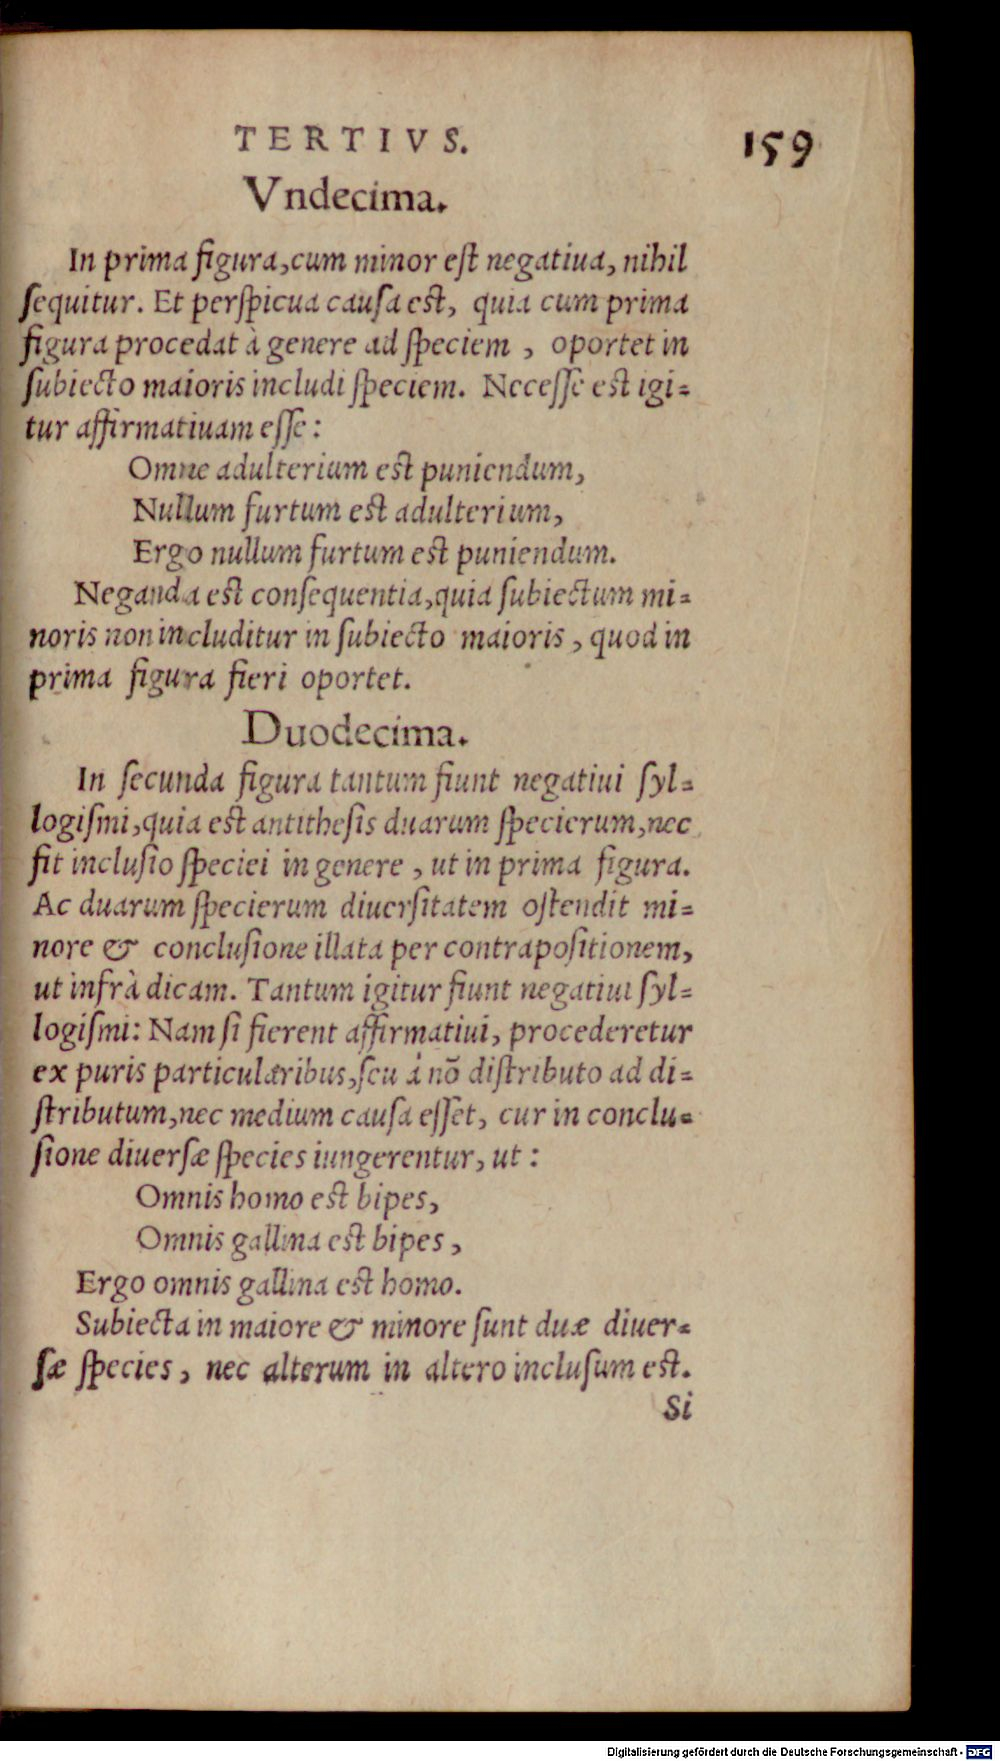 TERTIVS. 159
Vndecima.
In prima figura, cum minor eſt negatiua, nihil
ſequitur. Et perſpicua cauſa eſt, quia cum prima
figura procedat à genere ad ſpeciem, oportet in
ſubiecto maioris includi ſpeciem. Neceſſe eſt igi=
tur affirmatiuam eſſe:
Omne adulterium eſt puniendum,
Nullum furtum eſt adulterium,
Ergo nullum furtum eſt puniendum.
Neganda eſt conſequentia, quia ſubiectum mi=
noris non includitur in ſubiecto maioris, quod in
prima figura fieri oportet.
Duodecima.
In ſecunda figura tantum fiunt negatiui ſyl=
logiſmi, quia eſt antitheſis duarum ſpecierum, nec
fit incluſio ſpeciei in genere, ut in prima figura.
Ac duarum ſpecierum diuerſitatem oſtendit mi=
nore & concluſione illata per contrapoſitionem,
ut infrà dicam. Tantum igitur fiunt negatiui ſyl=
logiſmi: Nam ſi fierent affirmatiui, procederetur
ex puris particularibus, ſeu à nō diſtributo ad di=
ſtributum, nec medium cauſa eſſet, cur in conclu=
ſione diuerſæ ſpecies iungerentur, ut:
Omnis homo eſt bipes,
Omnis gallina eſt bipes,
Ergo omnis gallina eſt homo.
Subiecta in maiore & minore ſunt duæ diuer=
ſæ ſpecies, nec alterum in altero incluſum eſt.
Si
Digitalisierung gefördert durch die Deutsche Forschungsgemeinschaft - DFG